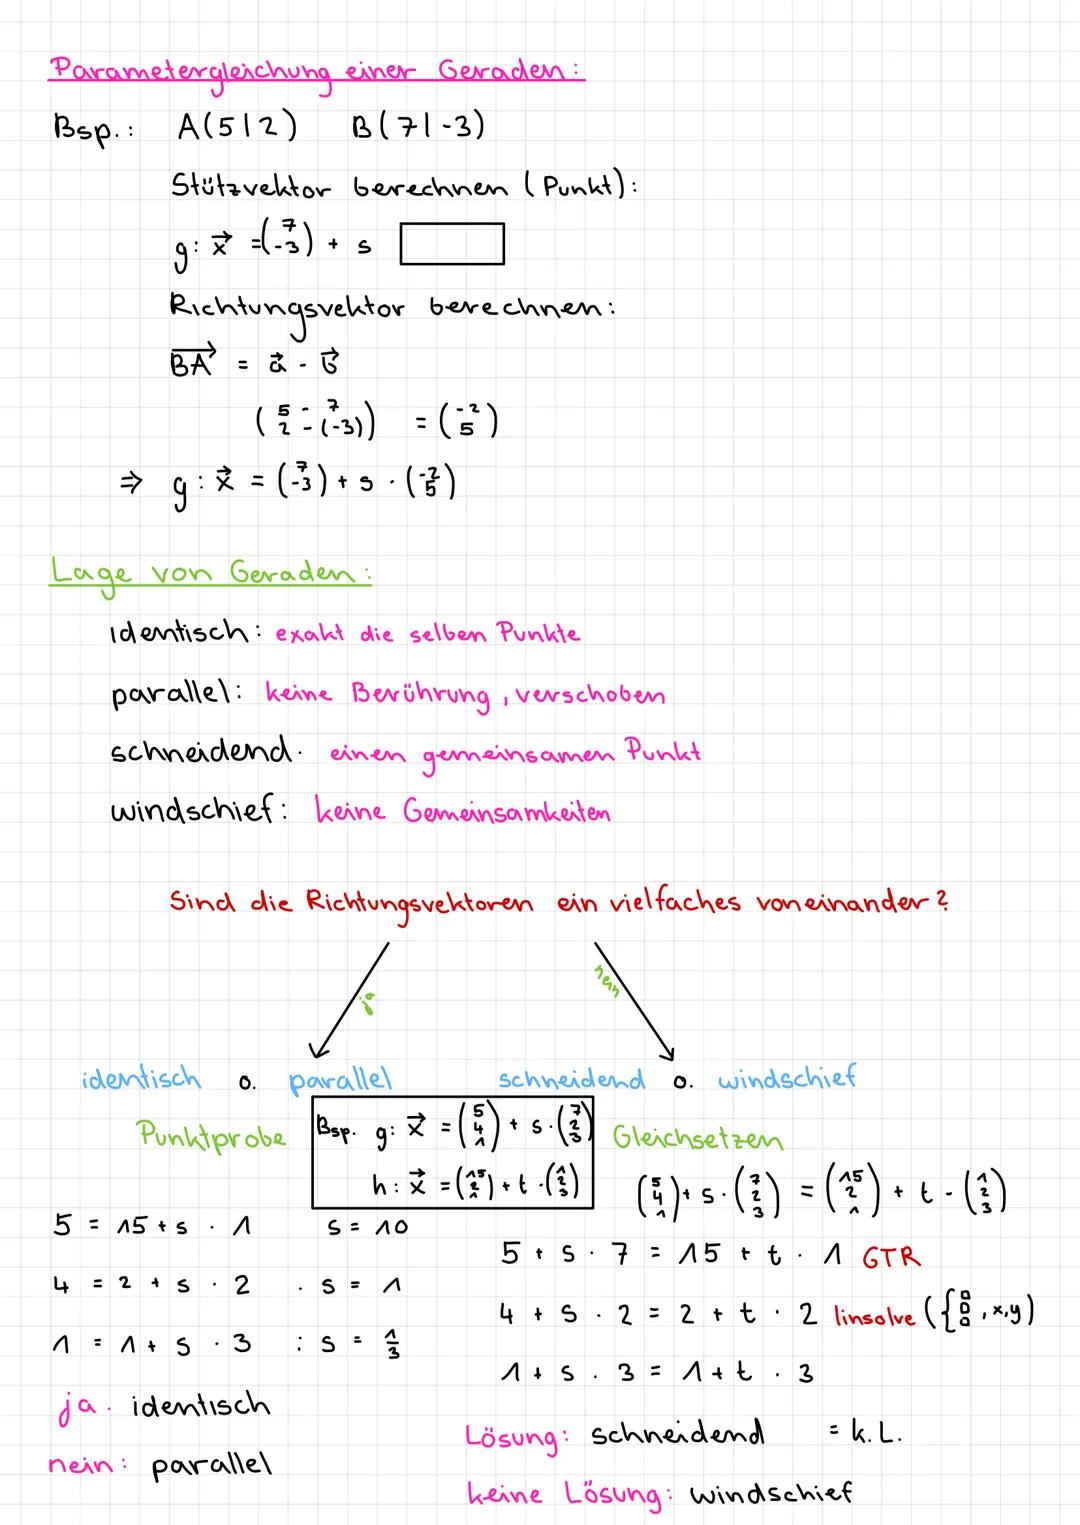 Parametergleichung einer Geraden:
Bsp.: A(5|2) B(7|-3)
Stützvektor berechnen (Punkt):
g: x⃗ = (7 -3) + s
Richtungsvektor berechnen:
BA⃗ = a⃗ - b⃗
(5 - 7 2 - (-3)) = (-2 5)
⇒ g: x⃗ = (7 -3) + s · (-2 5)
Lage von Geraden:
identisch: exakt die selben Punkte
parallel: keine Berührung, verschoben
schneidend. einen gemeinsamen Punkt
windschief: keine Gemeinsamkeiten
Sind die Richtungsvektoren ein vielfaches voneinander?
ja nein
identisch o. parallel schneidend o. windschief
Punktprobe
Bsp. g: x⃗ = (5 4 1) + s · (7 2 3)
h: x⃗ = (15 2 1) + t · (1 2 3)
5 = 15 + s · 1 s = 10
4 = 2 + s · 2 . s = 1
1 = 1 + s · 3 : s = 1/3
ja. identisch
nein: parallel
Gleichsetzen
(5 4 1) + s · (7 2 3) = (15 2 1) + t · (1 2 3)
5 + s · 7 = 15 + t · 1 GTR
4 + s · 2 = 2 + t · 2 linsolve ({▯ ▯ ▯, x,y)
1 + s · 3 = 1 + t · 3
Lösung: schneidend = k.L.
keine Lösung: windschief